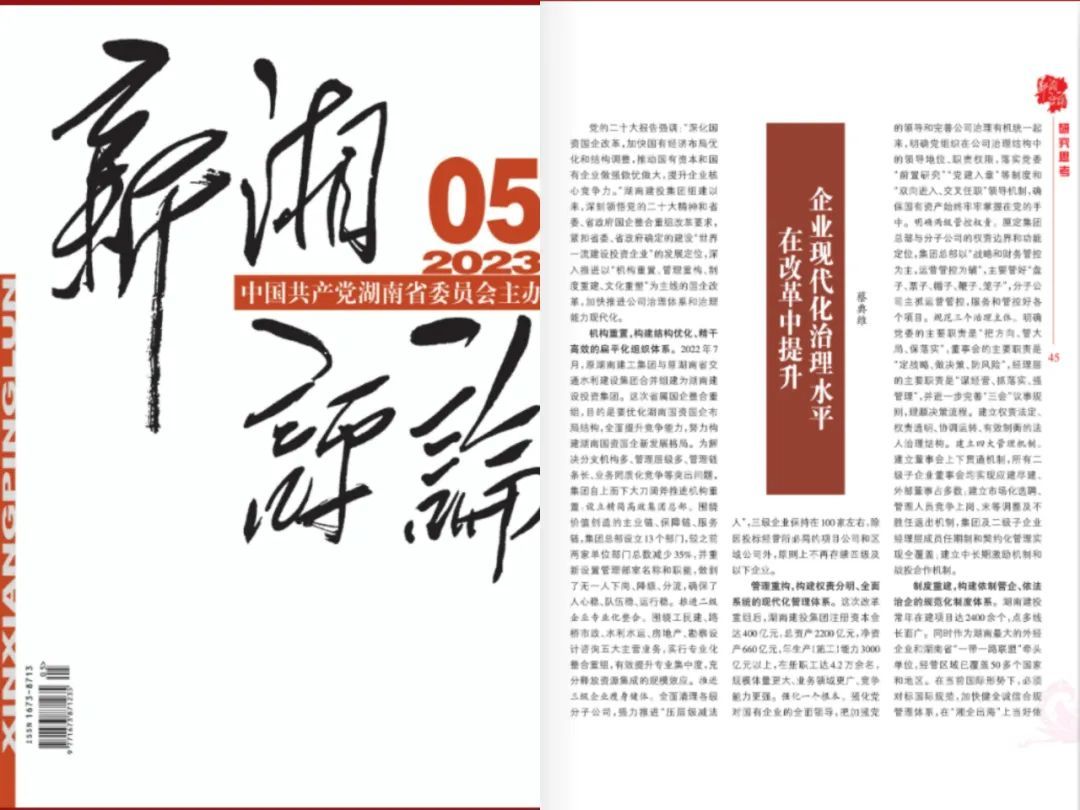 新湘
评论
05
2023
中国共产党湖南省委员会主办
XINXIANGPINGLUN
ISSN 1673-8713
研究思考
45
企业现代化治理水平
在改革中提升
蔡典维
党的二十大报告强调：“深化国
资国企改革，加快国有经济布局优
化和结构调整，推动国有资本和国
有企业做强做优做大，提升企业核
心竞争力。”湖南建投集团组建以
来，深刻领悟党的二十大精神和省
委、省政府国企整合重组改革要求，
紧扣省委、省政府确定的建设“世界
一流建设投资企业”的发展定位，深
入推进以“机构重置、管理重构、制
度重建、文化重塑”为主线的国企改
革，加快推进公司治理体系和治理
能力现代化。
机构重置，构建结构优化、精干
高效的扁平化组织体系。2022年7
月，原湖南建工集团与原湖南省交
通水利建设集团合并组建为湖南建
设投资集团。这次省属国企整合重
组，目的是要优化湖南国资国企布
局结构，全面提升竞争能力，努力构
建湖南国资国企新发展格局。为解
决分支机构多、管理层级多、管理链
条长、业务同质化竞争等突出问题，
集团自上而下大刀阔斧推进机构重
置：设立精简高效集团总部。围绕
价值创造的主业链、保障链、服务
链，集团总部设立13个部门，较之前
两家单位部门总数减少35%，并重
新设置管理部室名称和职能，做到
了无一人下岗、降级、分流，确保了
人心稳、队伍稳、运行稳。推进二级
企业专业化整合。围绕工民建、路
桥市政、水利水运、房地产、勘察设
计咨询五大主营业务，实行专业化
整合重组，有效提升专业集中度，充
分释放资源集成的规模效应。推进
三级企业瘦身健体。全面清理各级
分子公司，强力推进“压层级减法
人”，三级企业保持在100家左右，除
因投标经营所必需的项目公司和区
域公司外，原则上不再存续四级及
以下企业。
管理重构，构建权责分明、全面
系统的现代化管理体系。这次改革
重组后，湖南建投集团注册资本金
达400亿元，总资产2200亿元，净资
产660亿元，年生产（施工）能力3000
亿元以上，在册职工达4.2万余名，
规模体量更大、业务领域更广、竞争
能力更强。强化一个根本。强化党
对国有企业的全面领导，把加强党
的领导和完善公司治理有机统一起
来，明确党组织在公司治理结构中
的领导地位、职责权限，落实党委
“前置研究”“党建入章”等制度和
“双向进入、交叉任职”领导机制，确
保国有资产始终牢牢掌握在党的手
中。明确两级管控权责。厘定集团
总部与分子公司的权责边界和功能
定位，集团总部以“战略和财务管控
为主，运营管控为辅”，主要管好“盘
子、票子、帽子、鞭子、笼子”，分子公
司主抓运营管控，服务和管控好各
个项目。规范三个治理主体。明确
党委的主要职责是“把方向、管大
局、保落实”，董事会的主要职责是
“定战略、做决策、防风险”，经理层
的主要职责是“谋经营、抓落实、强
管理”，并进一步完善“三会”议事规
则，理顺决策流程。建立权责法定、
权责透明、协调运转、有效制衡的法
人治理结构。建立四大管理机制。
建立董事会上下贯通机制，所有二
级子企业董事会均实现应建尽建、
外部董事占多数；建立市场化选聘、
管理人员竞争上岗、末等调整及不
胜任退出机制，集团及二级子企业
经理层成员任期制和契约化管理实
现全覆盖；建立中长期激励机制和
战投合作机制。
制度重建，构建依制管企、依法
治企的规范化制度体系。湖南建投
常年在建项目达2400余个，点多线
长面广。同时作为湖南最大的外经
企业和湖南省“一带一路联盟”牵头
单位，经营区域已覆盖50多个国家
和地区。在当前国际形势下，必须
对标国际规范，加快健全诚信合规
管理体系，在“湘企出海”上当好雁